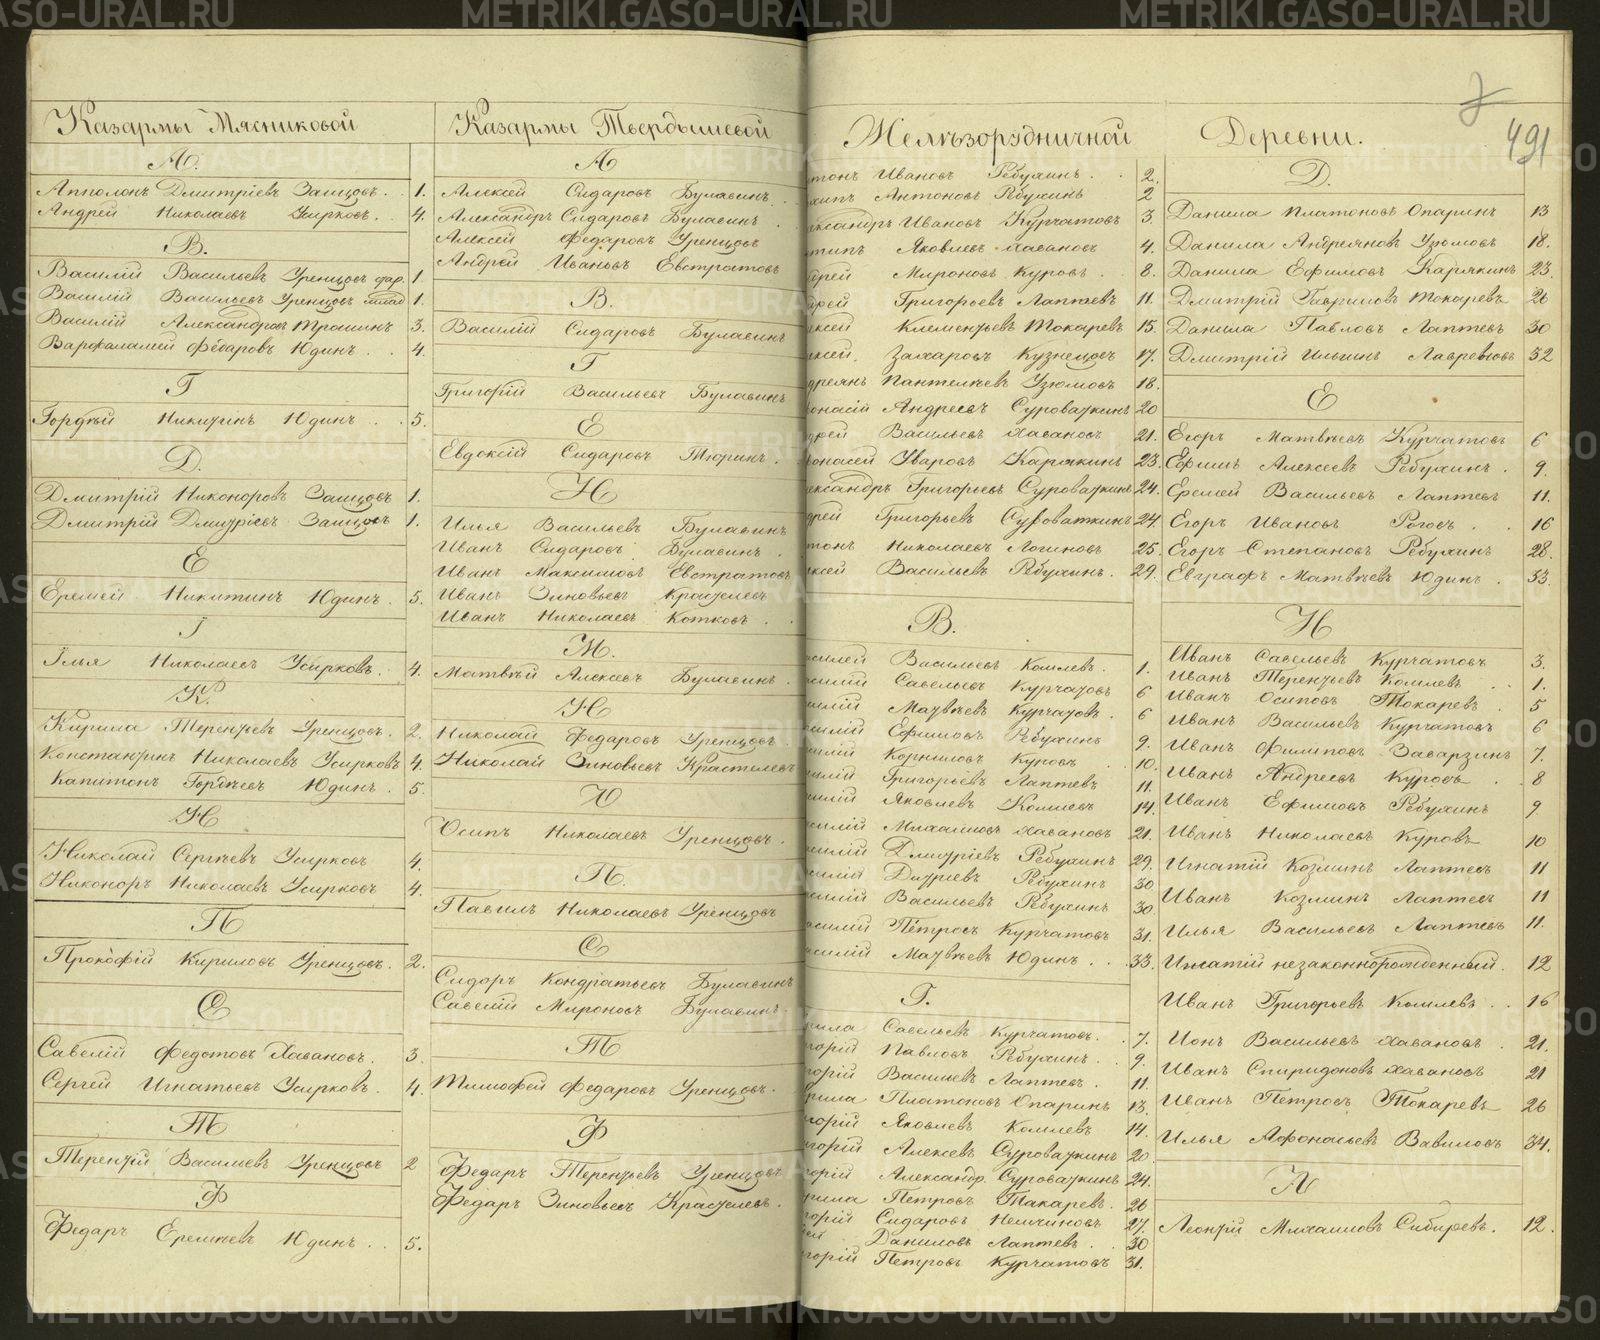 Казармы Мясниковой
А.
Апполонъ Дмитріевъ Заицовъ . 1.
Андрей Николаевъ Усирковъ . . 4.
В.
Василій Васильевъ Уренцовъ стар. 1.
Василій Васильевъ Уренцовъ млад 1.
Василій Александровъ Трошинъ 3.
Варфаламей Федаровъ Юдинъ . . 4.
Г
Гордѣй Никитинъ Юдинъ . . 5.
Д.
Дмитрій Никоноровъ Заицовъ 1.
Дмитрій Дмитріевъ Заицовъ 1.
Е
Еремей Никитинъ Юдинъ . 5.
І
Илья Николаевъ Усирковъ. 4.
К.
Кирила Терентьевъ Уренцовъ. 2.
Константинъ Николаевъ Усирковъ 4.
Капитонъ Гордѣевъ Юдинъ . 5.
Н
Николай Сергѣевъ Усирковъ 4.
Никоноръ Николаевъ Усирковъ 4.
П
Прокофій Кириловъ Уренцовъ. 2.
С
Савелій Федотовъ Хавановъ. 3.
Сергей Игнатьевъ Усирковъ. 4.
Т
Терентій Васильевъ Уренцовъ 2
Ф
Федаръ Еремѣевъ Юдинъ . . 5.
Казармы Твердышевой
А
Алексей Сидаровъ Булавинъ.
Александръ Сидаровъ Булавинъ
Алексей Федаровъ Уренцовъ
Андрей Ивановъ Евстратовъ
В.
Василій Сидаровъ Булавинъ
Г
Григорій Васильевъ Булавинъ
Е
Евдокій Сидаровъ Тюринъ.
И
Илья Васильевъ Булавинъ
Иванъ Сидаровъ Булавинъ .
Иванъ Максимовъ Евстратовъ
Иванъ Зиновьевъ Краснелевъ
Иванъ Николаевъ Котковъ . .
М.
Матвѣй Алексеевъ Булавинъ.
Н
Николай Федаровъ Уренцовъ.
Николай Зиновьевъ Крастелевъ
О
Осипъ Николаевъ Уренцовъ.
П.
Павилъ Николаевъ Уренцовъ
С
Сидоръ Кондратьевъ Булавинъ
Савелій Мироновъ Булавинъ.
Т
Тимофей Федаровъ Уренцовъ.
Ф
Федаръ Терентьевъ Уренцовъ
Федаръ Зиновьевъ Крастелевъ.
Желѣзорудничной Деревни.
491
тонъ Ивановъ Ребухинъ . . 2.
хипъ Антоновъ Ребухинъ 2
ксандръ Ивановъ Курчатовъ 3.
типъ Яковлевъ Хавановъ 4.
дрей Мироновъ Куровъ . 8.
дрей Григорьевъ Лаптевъ 11.
ксей Клементьевъ Токаревъ 15.
ксей Захаровъ Кузнецовъ 17.
дреянъ Пантелѣевъ Узюмовъ 18.
онасій Андреевъ Суроваткинъ 20
дрей Васильевъ Хавановъ 21.
онасей Уваровъ Карякинъ 23.
ександръ Григорьевъ Суроваткинъ 24.
дрей Григорьевъ Суроваткинъ 24.
тонъ Николаевъ Логиновъ 25.
ксей Васильевъ Ребухинъ . 29.
В.
асилей Васильевъ Комлевъ . 1.
асилій Савельевъ Курчатовъ 6
силій Матвѣевъ Курчатовъ . 6
силій Ефимовъ Ребухинъ 9.
силій Корниловъ Куровъ . 10.
силій Григорьевъ Лаптевъ 11.
силій Яковлевъ Комлевъ 14.
силій Михаиловъ Хавановъ 21.
силій Дмитріевъ Ребухинъ 29.
силій Дитріевъ Ребухинъ 30
силій Васильевъ Ребухинъ 30
асилій Петровъ Курчатовъ 31.
асилій Матвѣевъ Юдинъ . . 33.
Г.
рила Савельевъ Курчатовъ. . 7.
горій Павловъ Ребухинъ . 9.
горій Васильевъ Лаптевъ . 11.
рила Платоновъ Опаринъ 13.
горій Яковлевъ Комлевъ 14.
игорій Алексеевъ Суроваткинъ 20.
горій Александр. Суроваткинъ 24.
рила Петровъ Такаревъ. 26
горій Сидаровъ Немчиновъ 27.
ей Даниловъ Лаптевъ . . 30
горій Петровъ Курчатовъ 31.
Д.
Данила Платоновъ Опаринъ 13
Данила Андреяновъ Узюмовъ 18.
Данила Ефимовъ Карякинъ 23.
Дмитрій Гавриловъ Токаревъ 26
Данила Павловъ Лаптевъ 30
Дмитрій Ильинъ Лавреновъ 32
Е
Егоръ Матвѣевъ Курчатовъ 6
Ефимъ Алексеевъ Ребухинъ . 9.
Еремей Васильевъ Лаптевъ 11.
Егоръ Ивановъ Роговъ . . 16
Егоръ Степановъ Ребухинъ 28.
Евграфъ Матвѣевъ Юдинъ . 33.
И
Иванъ Савельевъ Курчатовъ 3.
Иванъ Терентьевъ Комлевъ . . 1.
Иванъ Осиповъ Токаревъ . 5
Иванъ Васильевъ Курчатовъ 6
Иванъ Филиповъ Заварзинъ 7.
Иванъ Андреевъ Куровъ . 8
Иванъ Ефимовъ Ребухинъ 9
Иванъ Николаевъ Куровъ 10
Игнатій Козминъ Лаптевъ 11
Иванъ Козминъ Лаптевъ 11
Илья Васильевъ Лаптевъ 11.
Игнатій незаконнорожденный. 12
Иванъ Григорьевъ Комлевъ . . 16
Ионъ Васильевъ Хавановъ . 21.
Иванъ Спиридоновъ Хавановъ 21
Иванъ Петровъ Токаревъ 26
Илья Афонасьевъ Вавиловъ 34.
Л
Леонтій Михаиловъ Сибиревъ. 12.
METRIKI.GASO-URAL.RU